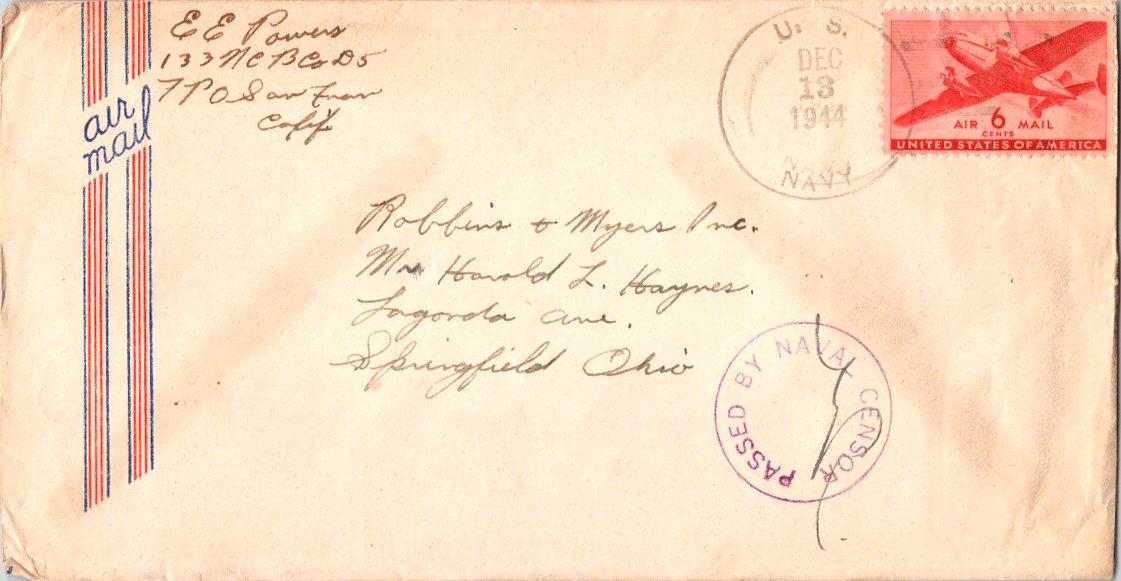 E E Powers
133 NCB Co D5
FPO San Fran
Calif.
air
mail
U. S.
DEC
13
1944
NAVY
AIR 6 MAIL
CENTS
UNITED STATES OF AMERICA
Robbins & Myers Inc.
Mr Harold L. Haynes.
Lagonda ave.
Springfield Ohio
PASSED BY NAVAL CENSOR